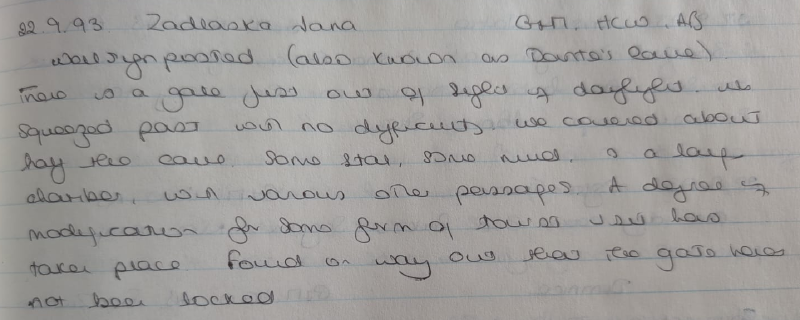 22.9.93 Zadlaska Jama G+M, HCW, AB
Well signposted (also known as Dante's cave)
There is a gate just out of sight of daylight. We
squeezed past with no difficulty. We covered about
half the cave. Some stal, some mud, is a large
chamber, with various other passages. A degree of
modification for some form of tourist use has
taken place. Found on way out that the gate had
not been locked